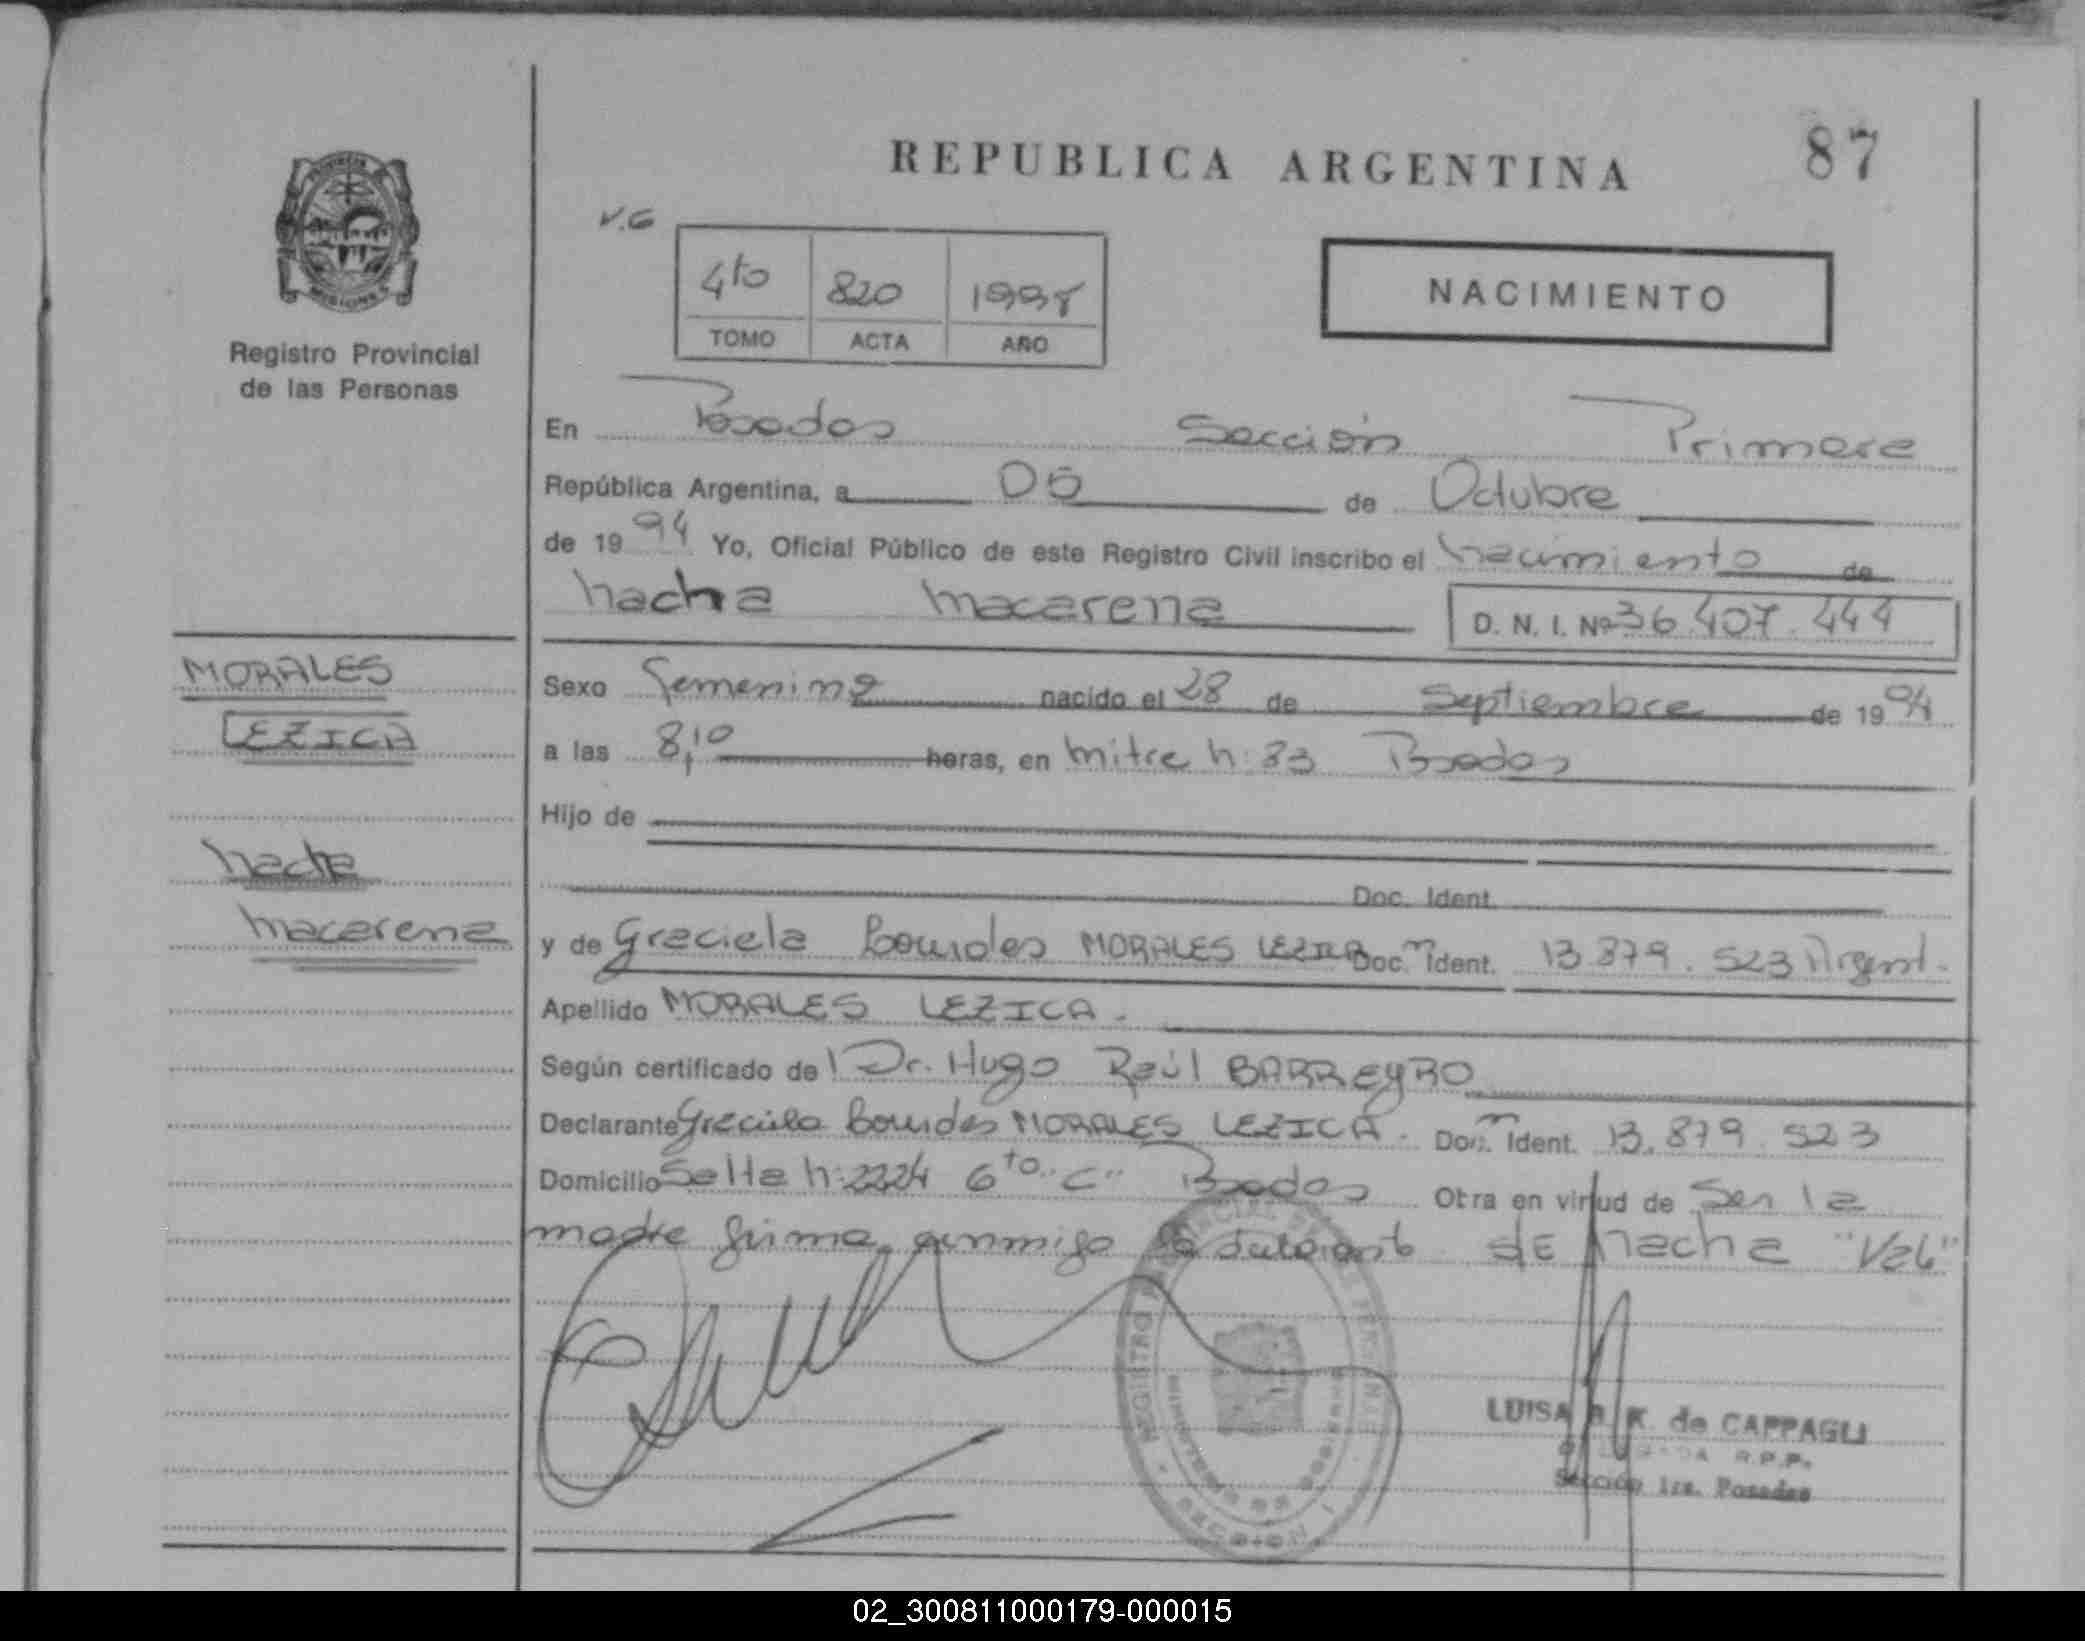 REPUBLICA ARGENTINA
87
V.G
4to 820 1994
TOMO ACTA AÑO
NACIMIENTO
Registro Provincial
de las Personas
En Posadas Sección Primera
República Argentina, a 05 de Octubre
de 1994 Yo, Oficial Público de este Registro Civil inscribo el nacimiento de
nacha macarena D. N. I. Nº 36.407.444
MORALES
LEZICA
nacha
macarena
Sexo femenino nacido el 28 de Septiembre de 1994
a las 8,10 horas, en mitre n: 83 Posadas
Hijo de
Doc. Ident.
y de Graciela Lourdes MORALES LEZICA Doc. Ident. 13.879.523 Argent.
Apellido MORALES LEZICA.
Según certificado de l Dr. Hugo Raúl BARREYRO
Declarante Graciela Lourdes MORALES LEZICA. Doc. Ident. 13.879.523
Domicilio Salta n: 2224 6to "C" Posadas Otra en virtud de Ser la
madre firma conmigo la declarante. dE nacha "Vale"
REGISTRO PROVINCIAL DE LAS PERSONAS
MINISTERIO DE GOBIERNO
SECCION 1
LUISA R. K. de CAPPAGLI
DELEGADA R.P.P.
Sección 1ra. Posadas
02_300811000179-000015